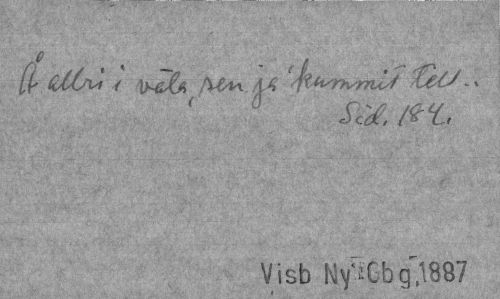 Å allri i väla, sen ja kummit tell..
Sid. 184.
Visb Ny Gbg, 1887